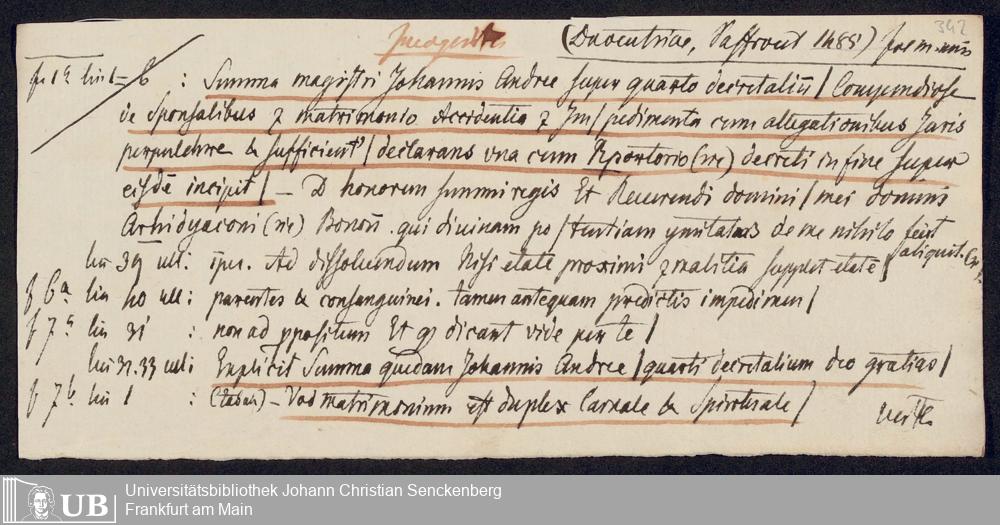 342
(Daventriae, Paffroet 1485)
f 1a lin 1-6 : Summa magistri Johannis Andree super quarto decretaliū / Compendiose
de Sponsalibus z matrimonio Accidentia z Im/pedimenta cum allegationibus Juris
perpulchre & sufficient' / declarans una cum Reportorio (sic) decreti in fine super
eisdē incipit / — honorem summi regis Et Reverendi domini / mei domini
Arhidyaconi (sic) Bonoñ. qui divinam po/tentiam de me nihilo fecit
aliquit.
lin 39 ult: ipu. Ad dissolvendum Nisi etate proximi z malitia supplet etatē /
f 6a lin 40 ult: parentes & consanguinei. tamen antequam predictis impedimen /
f 7a lin 31 : non ad ppositum Et q dicant vide per te /
lin 32.33 ult: Explicit Summa quedam Johannis Andree / quarti decretalium deo gratias /
f 7b lin 1 : Vod matrimonium est duplex Carnale & Spirituale /
UB
Universitätsbibliothek Johann Christian Senckenberg
Frankfurt am Main